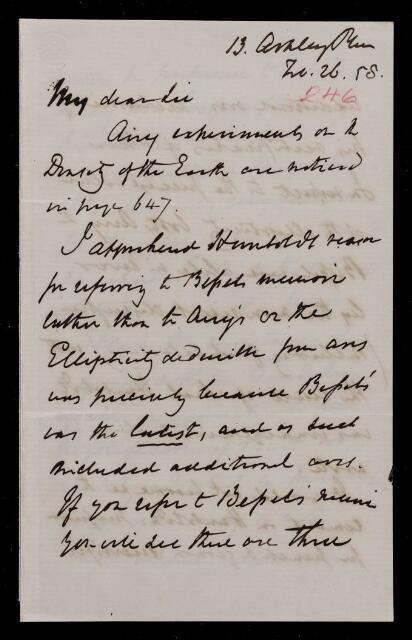 13. Ashley Place
Feb. 26. 58.
246
My dear Sir
Airy experiments on the
Density of the Earth are noticed
in page 647.
I apprehend Humboldt's reason
for referring to Bessel's memoir
rather than to Airy's on the
Ellipticity deducible from arcs
was precisely because Bessel's
was the latest, and as such
included additional arcs.
If you refer to Bessel's memoir
you will see there are three